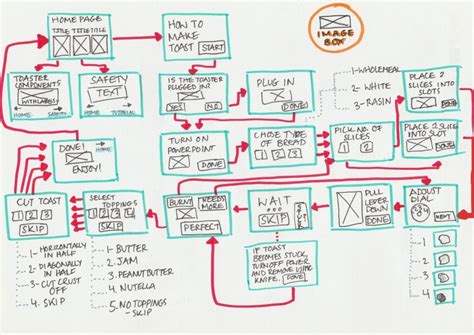 HOMEPAGE
TITLE TITLE TITLE
HOW TO
MAKE
TOAST
START
IMAGE
BOX
TOASTER
COMPONENTS
WITH LABELS
HOME
SAFETY
SAFETY
TEXT
HOME
TUTORIAL
IS THE TOASTER
PLUGGED IN?
YES
NO
PLUG IN
DONE
1-WHOLEMEAL
2- WHITE
3-RASIN
PLACE 2
SLICES INTO
SLOTS
DONE!
HOME
ENJOY!
TURN ON
POWERPOINT
DONE
CHOSE TYPE
OF BREAD
1 2 3
PICK NO. OF
SLICES
1 2
PLACE 1 SLICE
INTO SLOT
CUT TOAST
1 2 3
SKIP
SELECT
TOPPINGS
1 2 3 4
SKIP
BURNT
NEEDS
MORE
PERFECT
WAIT
SKIP
PULL
LEVER
DOWN
DONE
ADJUST
DIAL
NEXT
1- HORIZONTALLY
IN HALF
2- DIAGONALLY
IN HALF
3- CUT CRUST
OFF
4. SKIP
1- BUTTER
2. JAM
3. PEANUT BUTTER
4. NUTELLA
5. NO TOPPINGS
- SKIP
IF TOAST
BECOMES STUCK,
TURN OFF POWER
AND REMOVE USING
KNIFE.
DONE
1
2
3
4